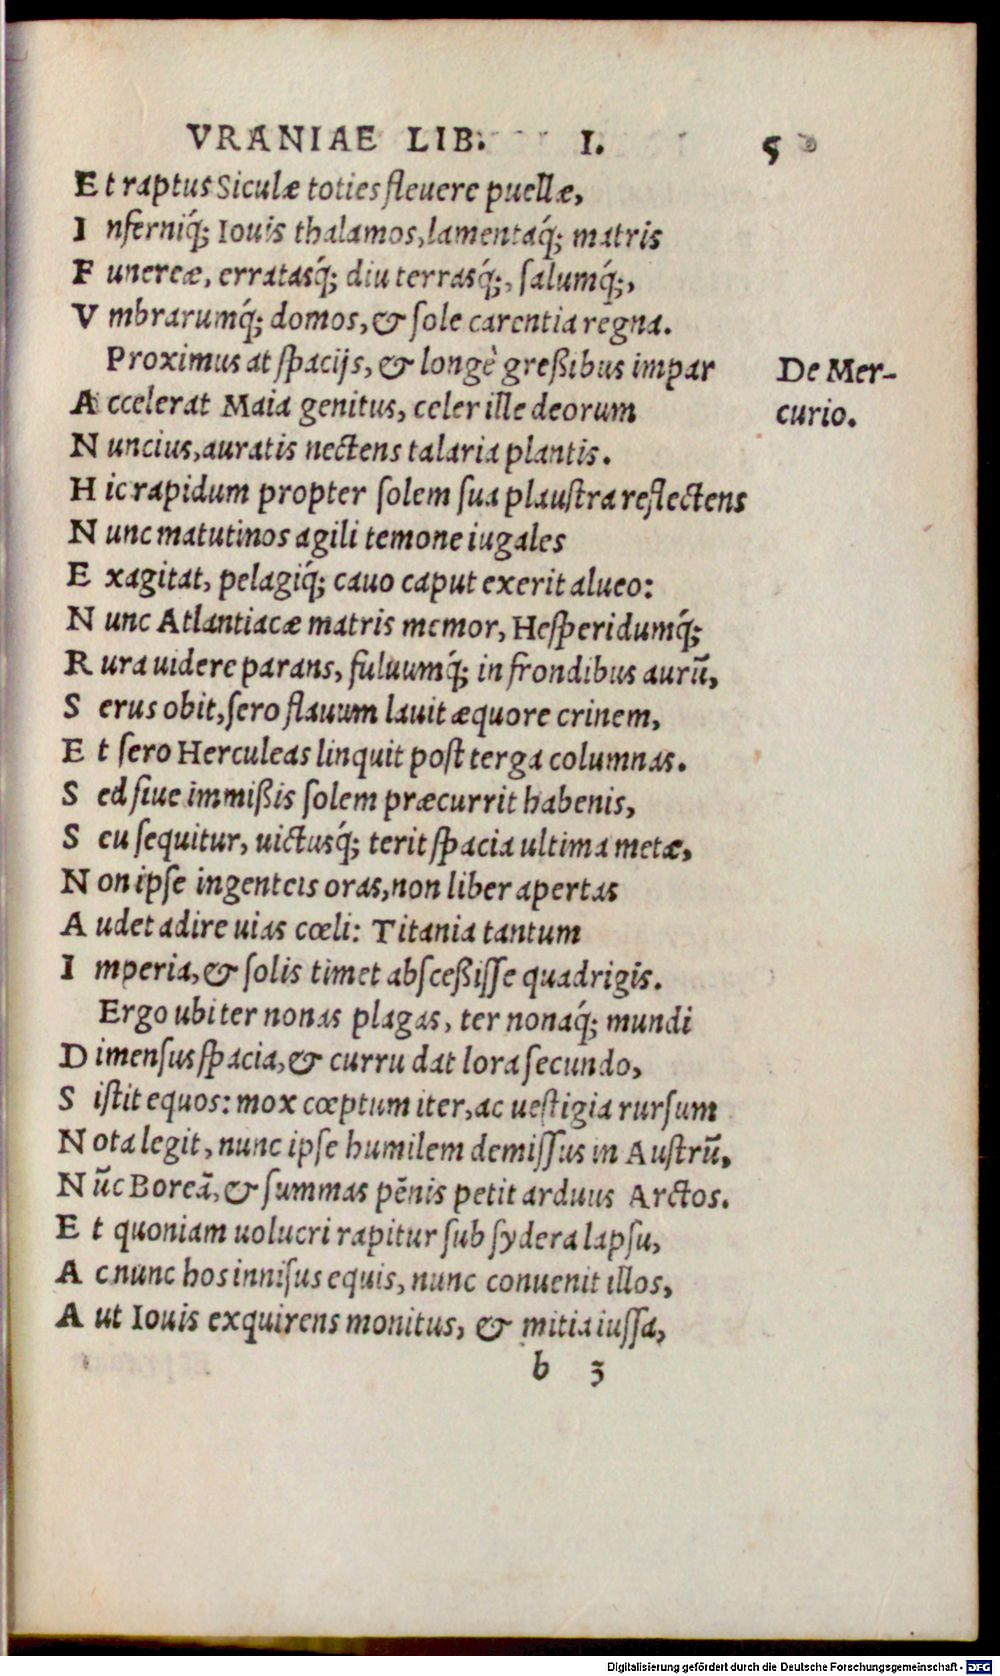 VRANIAE LIB. I. 5
Et raptus Siculæ toties fleuere puellæ,
Inferniq́; Iouis thalamos, lamentaq́; matris
Funereæ, erratasq́; diu terrasq́;, salumq́;,
Vmbrarumq́; domos, & sole carentia regna.
Proximus at spacijs, & longè greßibus impar
De Mer-
curio.
Accelerat Maia genitus, celer ille deorum
Nuncius, auratis nectens talaria plantis.
Hic rapidum propter solem sua plaustra reflectens
Nunc matutinos agili temone iugales
Exagitat, pelagiq́; cauo caput exerit alueo:
Nunc Atlantiacæ matris memor, Hesperidumq́;
Rura uidere parans, fuluumq́; in frondibus aurũ,
Serus obit, sero flauum lauit æquore crinem,
Et sero Herculeas linquit post terga columnas.
Sed siue immißis solem præcurrit habenis,
Seu sequitur, uictusq́; terit spacia ultima metæ,
Non ipse ingenteis oras, non liber apertas
Audet adire uias cœli: Titania tantum
Imperia, & solis timet absceßisse quadrigis.
Ergo ubi ter nonas plagas, ter nonaq́; mundi
Dimensus spacia, & curru dat lora secundo,
Sistit equos: mox cœptum iter, ac uestigia rursum
Nota legit, nunc ipse humilem demissus in Austrũ,
Nũc Boreã, & summas pẽnis petit arduus Arctos.
Et quoniam uolucri rapitur sub sydera lapsu,
Ac nunc hos innisus equis, nunc conuenit illos,
Aut Iouis exquirens monitus, & mitia iussa,
b 3
Digitalisierung gefördert durch die Deutsche Forschungsgemeinschaft - DFG